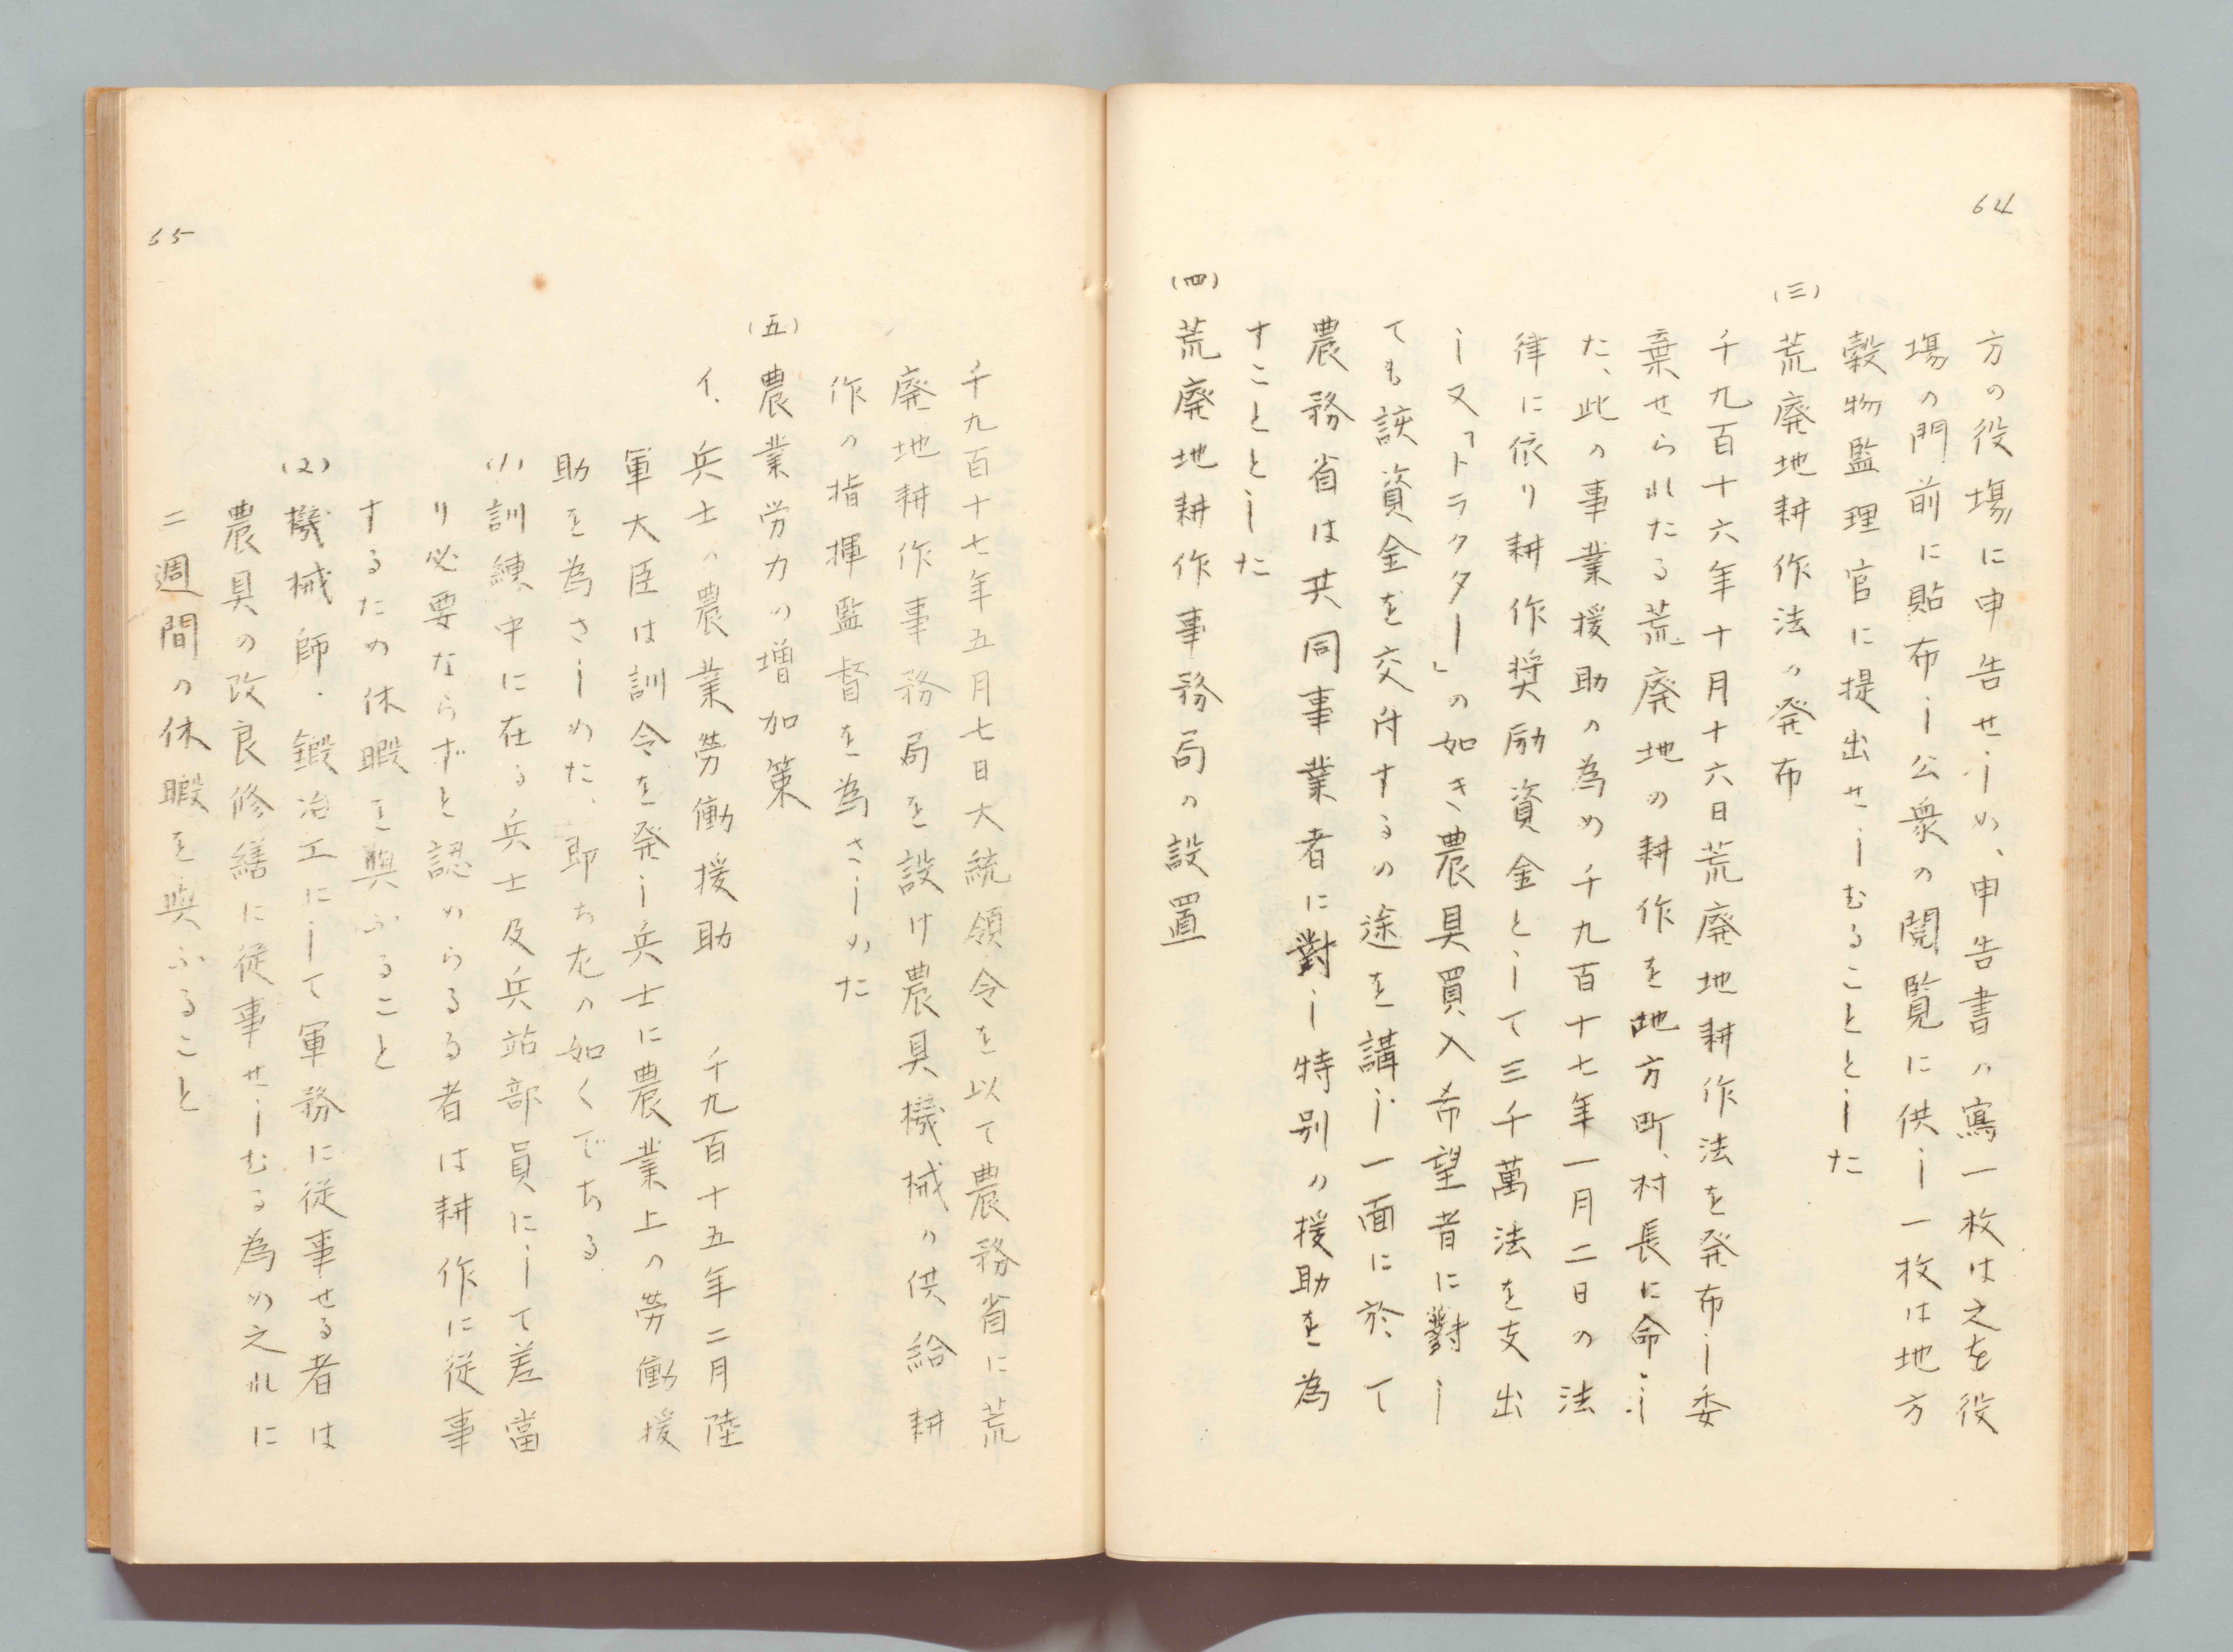 64
方の役場に申告せしめ、申告書の寫一枚は之を役
場の門前に貼布し公衆の閲覧に供し一枚は地方
穀物監理官に提出せしむることとした
(三)荒廃地耕作法の発布
千九百十六年十月十六日荒廃地耕作法を発布し委
棄せられたる荒廃地の耕作を地方町、村長に命じ
た、此の事業援助の為め千九百十七年一月二日の法
律に依り耕作奨励資金として三千萬法を支出
し又「トラクター」の如き農具買入希望者に對し
ても該資金を交付するの途を講じ一面に於て
農務省は共同事業者に對し特別の援助を為
すこととした
(四)荒廃地耕作事務局の設置
千九百十七年五月七日大統領令を以て農務省に荒
廃地耕作事務局を設け農具機械の供給耕
作の指揮監督を為さしめた
(五)農業労力の増加策
イ、兵士の農業勞働援助 千九百十五年二月陸
軍大臣は訓令を発し兵士に農業上の勞働援
助を為さしめた、即ち左の如くでちる
(1)訓練中に在る兵士及兵站部員にして差當
り必要ならずと認めらるる者は耕作に従事
するため休暇を與ふること
(2)機械師・鍛冶工にして軍務に従事せる者は
農具の改良修繕に従事せしむる為め之れに
二週間の休暇を與ふること
65